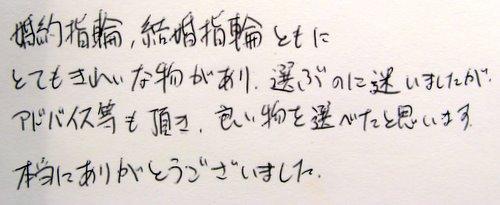 婚約指輪,結婚指輪ともに
とてもきれいな物があり、選ぶのに迷いましたが、
アドバイス等も頂き、良い物を選べたと思います。
本当にありがとうございました.